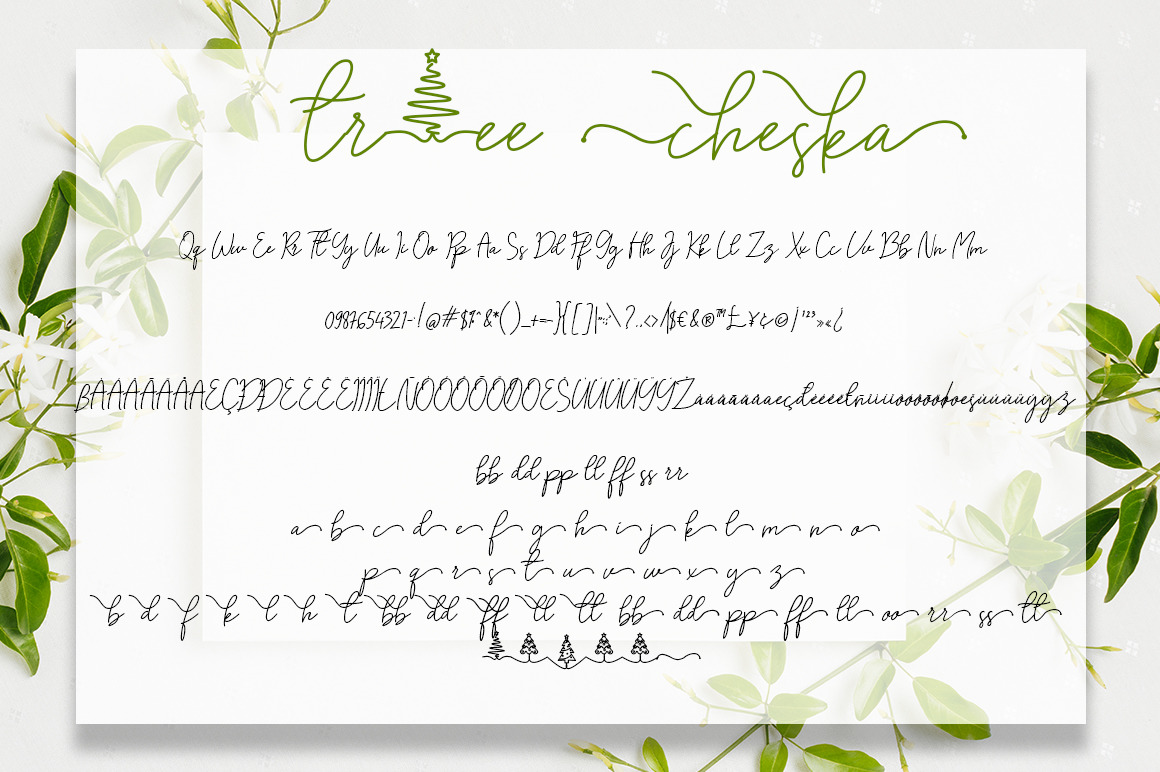 tree cheska
Qq Ww Ee Rr Tt Yy Uu Ii Oo Pp Aa Ss Dd Ff Gg Hh Jj Kk Ll Zz Xx Cc Vv Bb Nn Mm
0987654321-·!@#$%^&*()_+=-}{[]|"":;'\?.,<>/|$€&®™£¥¢©/¹²³»«¿
bb dd pp ll ff ss rr
a b c d e f g h i j k l m n o
p q r s t u v w x y z
b d f k l h t bb dd ff ll tt bb dd pp ff ll oo rr ss tt